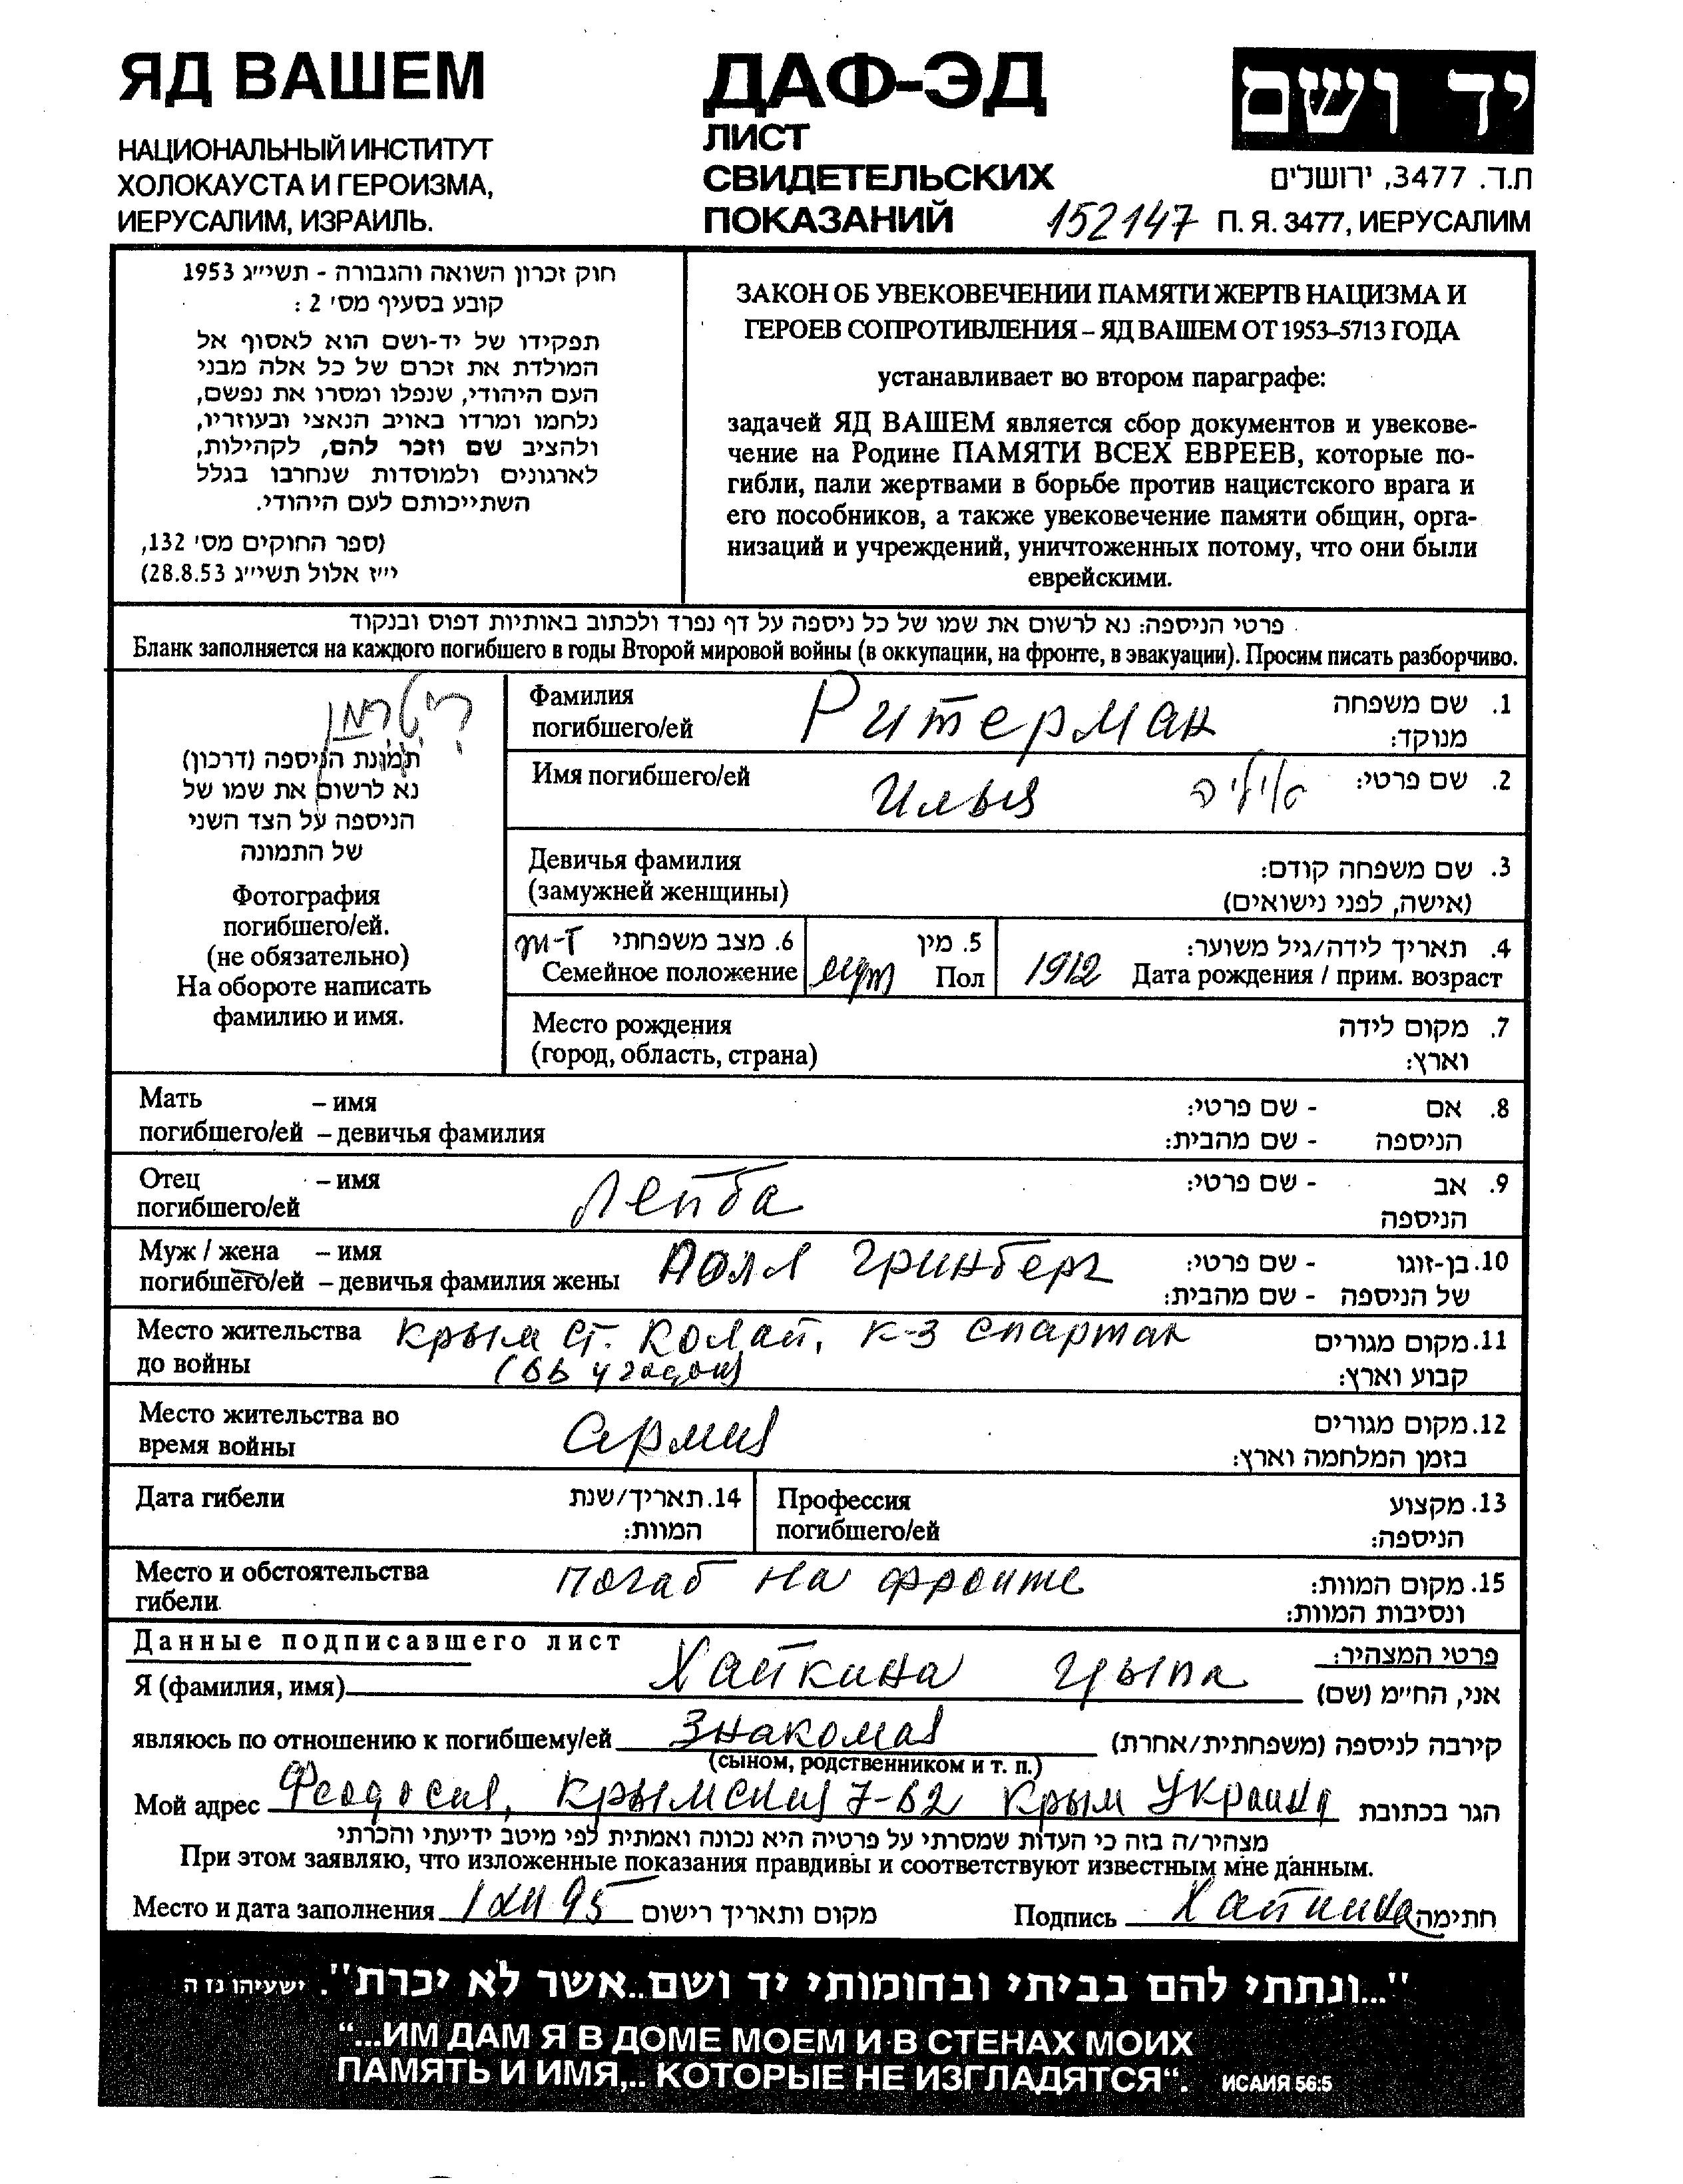 ЯД ВАШЕМ
НАЦИОНАЛЬНЫЙ ИНСТИТУТ
ХОЛОКАУСТА И ГЕРОИЗМА,
ИЕРУСАЛИМ, ИЗРАИЛЬ.
ДАФ-ЭД
ЛИСТ
СВИДЕТЕЛЬСКИХ
ПОКАЗАНИЙ
152147
יד ושם
ת.ד. 3477, ירושלים
П. Я. 3477, ИЕРУСАЛИМ
חוק זכרון השואה והגבורה - תשי״ג 1953
קובע בסעיף מס׳ 2 :
תפקידו של יד-ושם הוא לאסוף אל
המולדת את זכרם של כל אלה מבני
העם היהודי, שנפלו ומסרו את נפשם,
נלחמו ומרדו באויב הנאצי ובעוזריו,
ולהציב שם וזכר להם, לקהילות,
לארגונים ולמוסדות שנחרבו בגלל
השתייכותם לעם היהודי.
(ספר החוקים מס׳ 132,
י״ז אלול תשי״ג 28.8.53)
ЗАКОН ОБ УВЕКОВЕЧЕНИИ ПАМЯТИ ЖЕРТВ НАЦИЗМА И
ГЕРОЕВ СОПРОТИВЛЕНИЯ – ЯД ВАШЕМ ОТ 1953–5713 ГОДА
устанавливает во втором параграфе:
задачей ЯД ВАШЕМ является сбор документов и увекове-
чение на Родине ПАМЯТИ ВСЕХ ЕВРЕЕВ, которые по-
гибли, пали жертвами в борьбе против нацистского врага и
его пособников, а также увековечение памяти общин, орга-
низаций и учреждений, уничтоженных потому, что они были
еврейскими.
פרטי הניספה: נא לרשום את שמו של כל ניספה על דף נפרד ולכתוב באותיות דפוס ובנקוד
Бланк заполняется на каждого погибшего в годы Второй мировой войны (в оккупации, на фронте, в эвакуации). Просим писать разборчиво.
ריטרמן
תמונת הניספה (דרכון)
נא לרשום את שמו של
הניספה על הצד השני
של התמונה
Фотография
погибшего/ей.
(не обязательно)
На обороте написать
фамилию и имя.
Фамилия
погибшего/ей
Ритерман
1. שם משפחה
מנוקד:
Имя погибшего/ей
Илья
איליה
2. שם פרטי:
Девичья фамилия
(замужней женщины)
3. שם משפחה קודם:
(אישה, לפני נישואים)
6. מצב משפחתי
Семейное положение
5. מין
Пол
муж
4. תאריך לידה/גיל משוער:
Дата рождения / прим. возраст
1912
Место рождения
(город, область, страна)
7. מקום לידה
וארץ:
Мать – имя
погибшего/ей – девичья фамилия
8. אם - שם פרטי:
הניספה - שם מהבית:
Отец – имя
погибшего/ей
Лейба
9. אב - שם פרטי:
הניספה
Муж / жена – имя
погибшего/ей – девичья фамилия жены
Гринберг
10. בן-זוגו - שם פרטי:
של הניספה - שם מהבית:
Место жительства
до войны
Крым ст. Колай, к-з Спартак
11. מקום מגורים
קבוע וארץ:
Место жительства во
время войны
Армия
12. מקום מגורים
בזמן המלחמה וארץ:
Дата гибели
14. תאריך/שנת
המוות:
Профессия
погибшего/ей
13. מקצוע
הניספה:
Место и обстоятельства
гибели
погиб на фронте
15. מקום המוות:
ונסיבות המוות:
Данные подписавшего лист
פרטי המצהיר:
Я (фамилия, имя) Хайкина Цыпа אני, החי״מ (שם)
являюсь по отношению к погибшему/ей Знакомая קירבה לניספה (משפחתית/אחרת)
(сыном, родственником и т. п.)
Мой адрес Феодосия, Крымская 7-62 Крым Украина הגר בכתובת
מצהיר/ה בזה כי העדות שמסרתי על פרטיה היא נכונה ואמתית לפי מיטב ידיעתי והכרתי
При этом заявляю, что изложенные показания правдивы и соответствуют известным мне данным.
Место и дата заполнения 95 מקום ותאריך רישום Подпись Хайкина חתימה
"...ונתתי להם בביתי ובחומותי יד ושם...אשר לא יכרת". ישעיהו נז ה
“...ИМ ДАМ Я В ДОМЕ МОЕМ И В СТЕНАХ МОИХ
ПАМЯТЬ И ИМЯ,.. КОТОРЫЕ НЕ ИЗГЛАДЯТСЯ“. ИСАИЯ 56:5